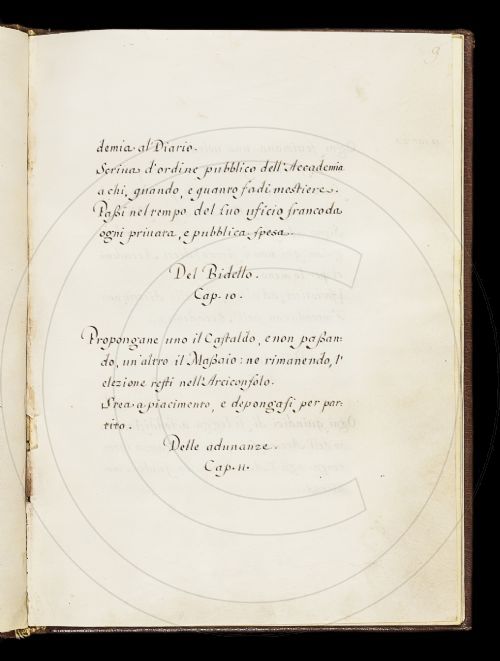 9
demia al Diario.
Scriva d'ordine pubblico dell'Accademia
a chi, quando, e quanto fa di mestiere.
Paßi nel tempo del suo uficio franco da
ogni privata, e pubblica spesa.
Del Bidello.
Cap. 10.
Propongane uno il Castaldo, e non paßan-
do, un'altro il Maßaio: ne rimanendo, l'
elezione resti nell'Arciconsolo.
Stea a piacimento, e depongasi per par-
tito.
Delle adunanze.
Cap. 11.